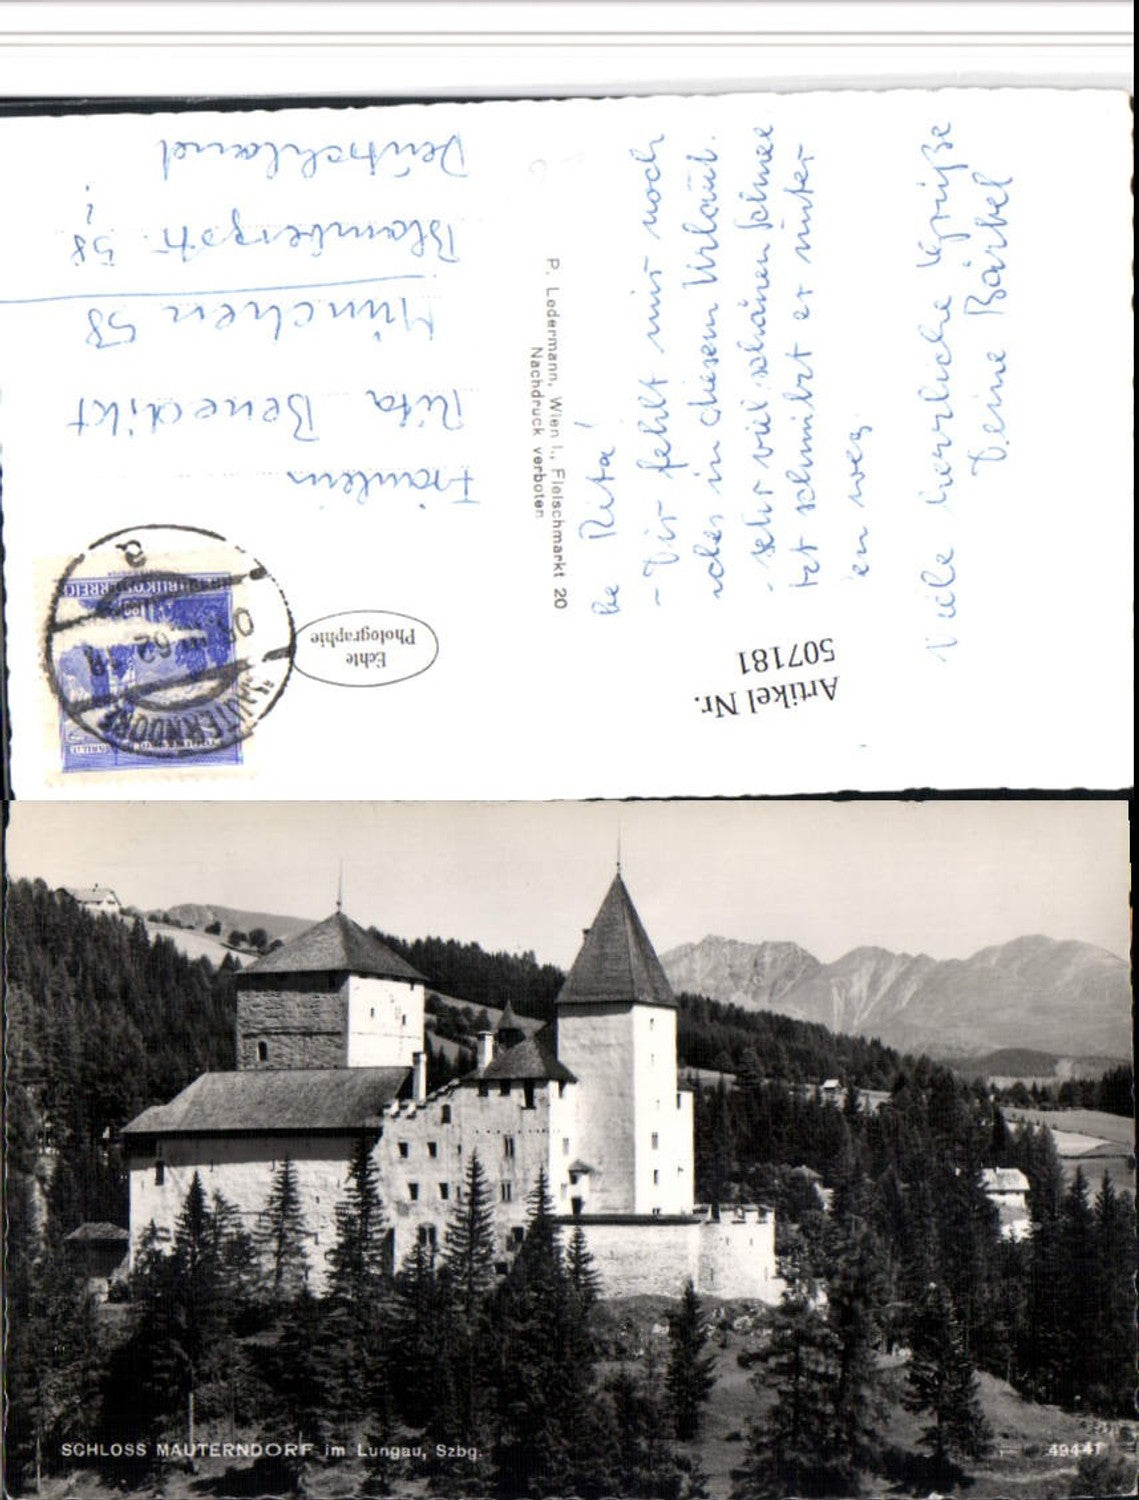 be Rita!
- Dir fehlt mir noch
iches in diesem Urlaub.
- sehr viel schönen Schnee
tzt schmilzt er unter
en weg.
Viele herrliche Grüße
Deine Bärbel
P. Ledermann, Wien I., Fleischmarkt 20
Nachdruck verboten
Fräulein
Rita Benedikt
München 58
Blombergstr. 58
Deutschland
Echte
Photographie
REPUBLIK ÖSTERREICH
MAUTERNDORF
62
a
Artikel Nr.
507181
SCHLOSS MAUTERNDORF im Lungau, Szbg.
49441